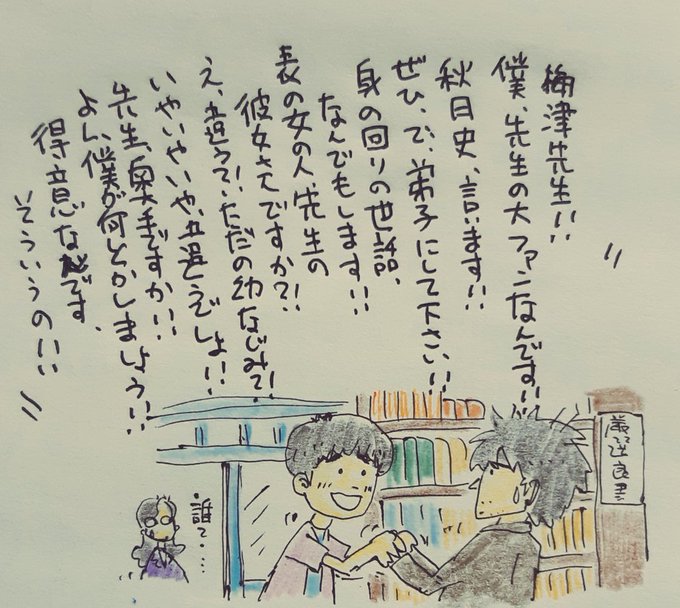 〃
梅津先生!!
僕、先生の大ファンなんです!!
秋月史、言います!!
ぜひ、で、弟子にして下さい!!
身の回りの世話、
なんでもします!!
表の女の人、先生の
彼女さんですか?!
え、違う?!ただの幼なじみ?!
いやいやいや、違うでしょ!!
先生、奥手ですか!!
よし、僕が何とかしましょう!!
得意なんです、
そういうの!!
〃
厳選良書
誰て・・・・